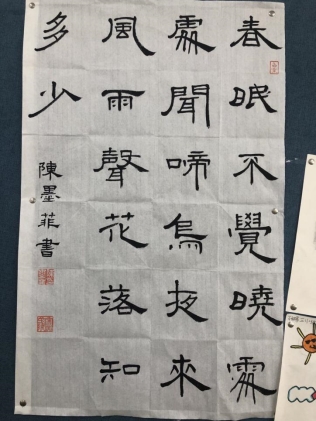 春眠不覺曉處
處聞啼鳥夜來
風雨聲花落知
多少
陳墨菲書